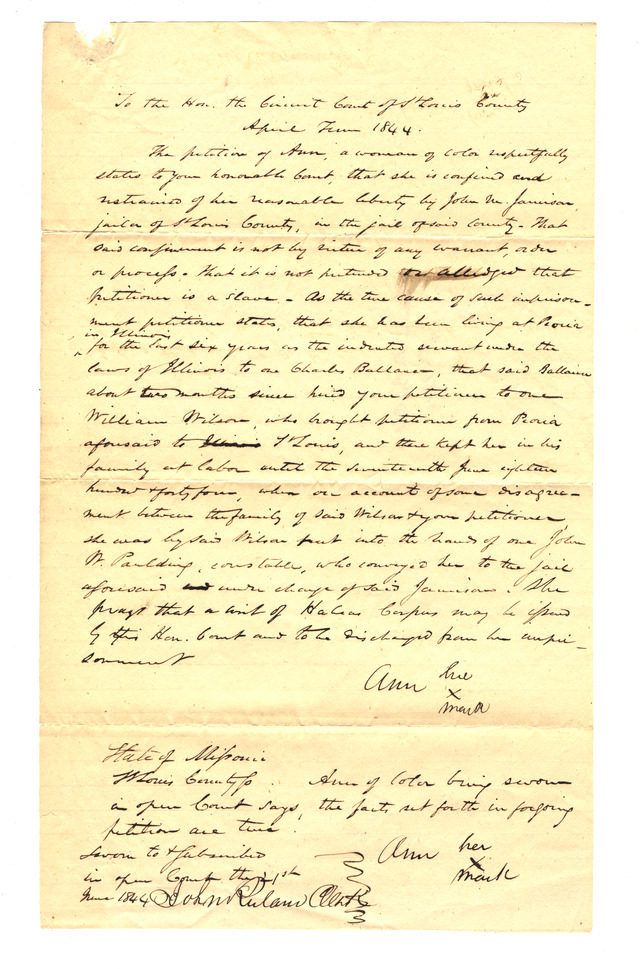 To the Hon. the Circuit Court of St Louis County
April Term 1844.
The petition of Ann, a woman of color respectfully
states to your honorable Court, that she is confined and
restrained of her reasonable liberty by John M. Jamison,
jailor of St Louis County, in the jail of said county - That
said confinement is not by virtue of any warrant, order
or process - That it is not pretended or alledged that
petitioner is a slave - As the true cause of such imprison-
ment petitioner states, that she has been living at Peoria
in Illinois
for the last six years as the indented servant under the
laws of Illinois to one Charles Ballance, that said Ballance
about two months since hired your petitioner to one
William Wilson, who brought petitioner from Peoria
aforesaid to St Louis, and there kept her in his
family at labor until the seventeenth June eighteen
hundred & forty four, when on account of some disagree-
ment between the family of said Wilson & your petitioner
she was by said Wilson put into the hands of one John
W. Paulding, constable, who conveyed her to the jail
aforesaid under charge of said Jamison. She
prays that a writ of Habeas Corpus may be issued
by this Hon. Court and to be discharged from her impri-
sonment
Ann her
x
mark
State of Missouri
St Louis County ss. Ann of Color being sworn
in open Court says, the facts set forth in forgoing
petition are true.
Sworn to & Subscribed
Ann her
x
mark
in open Court this 21st
June 1844 John Ruland Clerk